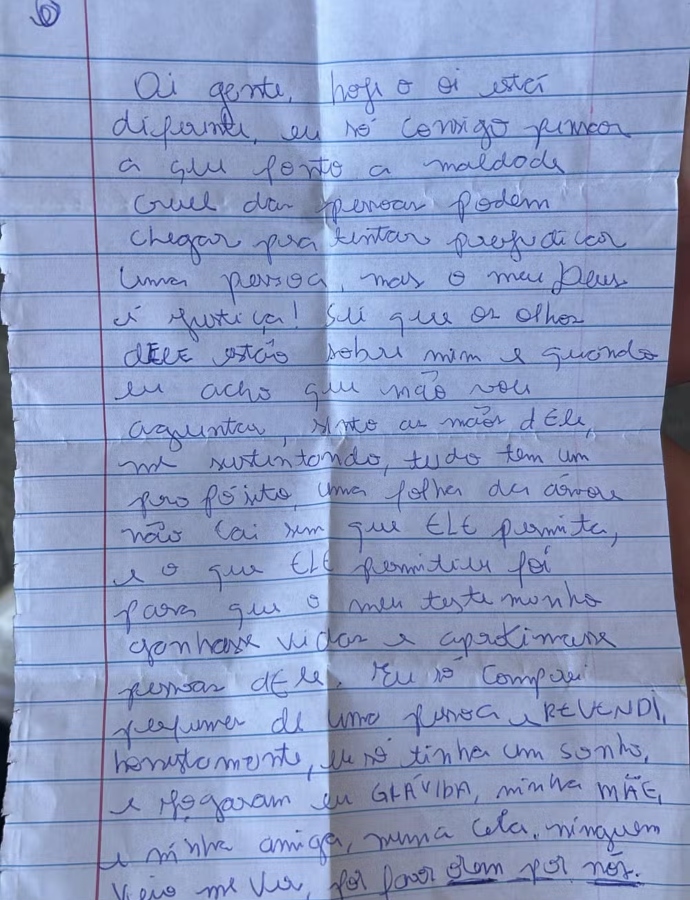 Oi gente, hoje o oi está
diferente, eu só consigo pensar
a que ponto a maldade
cruel das pessoas podem
chegar pra tentar prejudicar
uma pessoa, mas o meu Deus
é justiça! Sei que os olhos
dELE estão sobre mim e quando
eu acho que não vou
aguentar, sinto as mãos dEle,
me sustentando, tudo tem um
propósito, uma folha da árvore
não cai sem que ELE permita,
e o que ELE permitiu foi
para que o meu testemunho
ganhasse vidas e aproximasse
pessoas dEle. Eu só comprei
perfumes de uma pessoa e REVENDI,
honestamente, eu só tinha um sonho,
e jogaram eu GRÁVIDA, minha MÃE,
e minha amiga, numa cela, ninguém
veio me ver, por favor orem por nós.